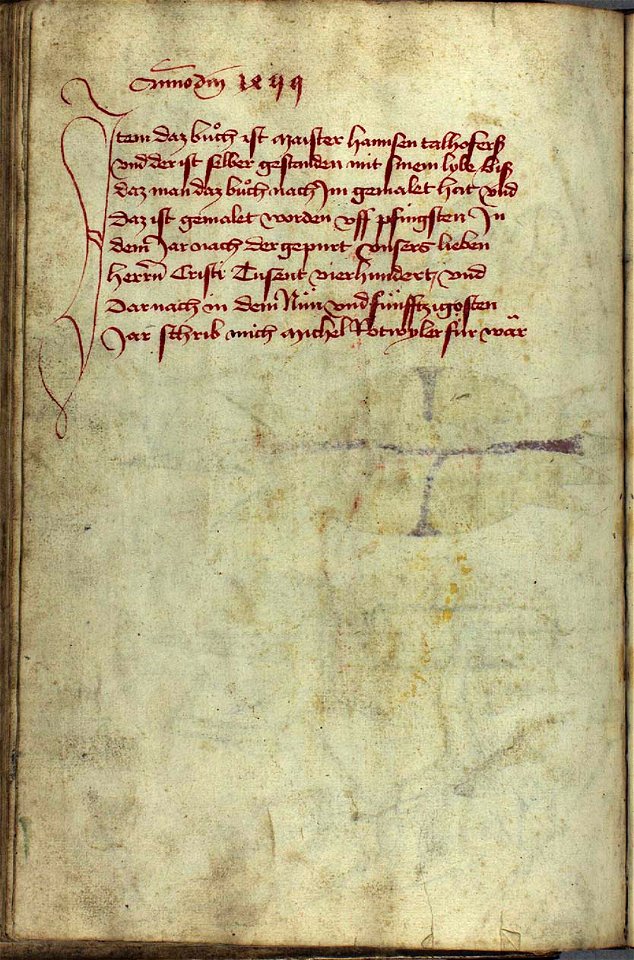 Item daz bůch ist maister hannsen talhoferß
Vnd der ist selber gestanden mit sinem lybe Biß
daz man daz bůch nach Im gemalet hat Vnd
Daz ist gemalet worden vff pfingsten In
dem Jar nach der gepurt Vnsers lieben
herrñ Cristi Tusent vierhundert, vnd
Darnach in dem Nün vnd fünfftzigosten
Jar schrib mich Michel Rotwyler für war